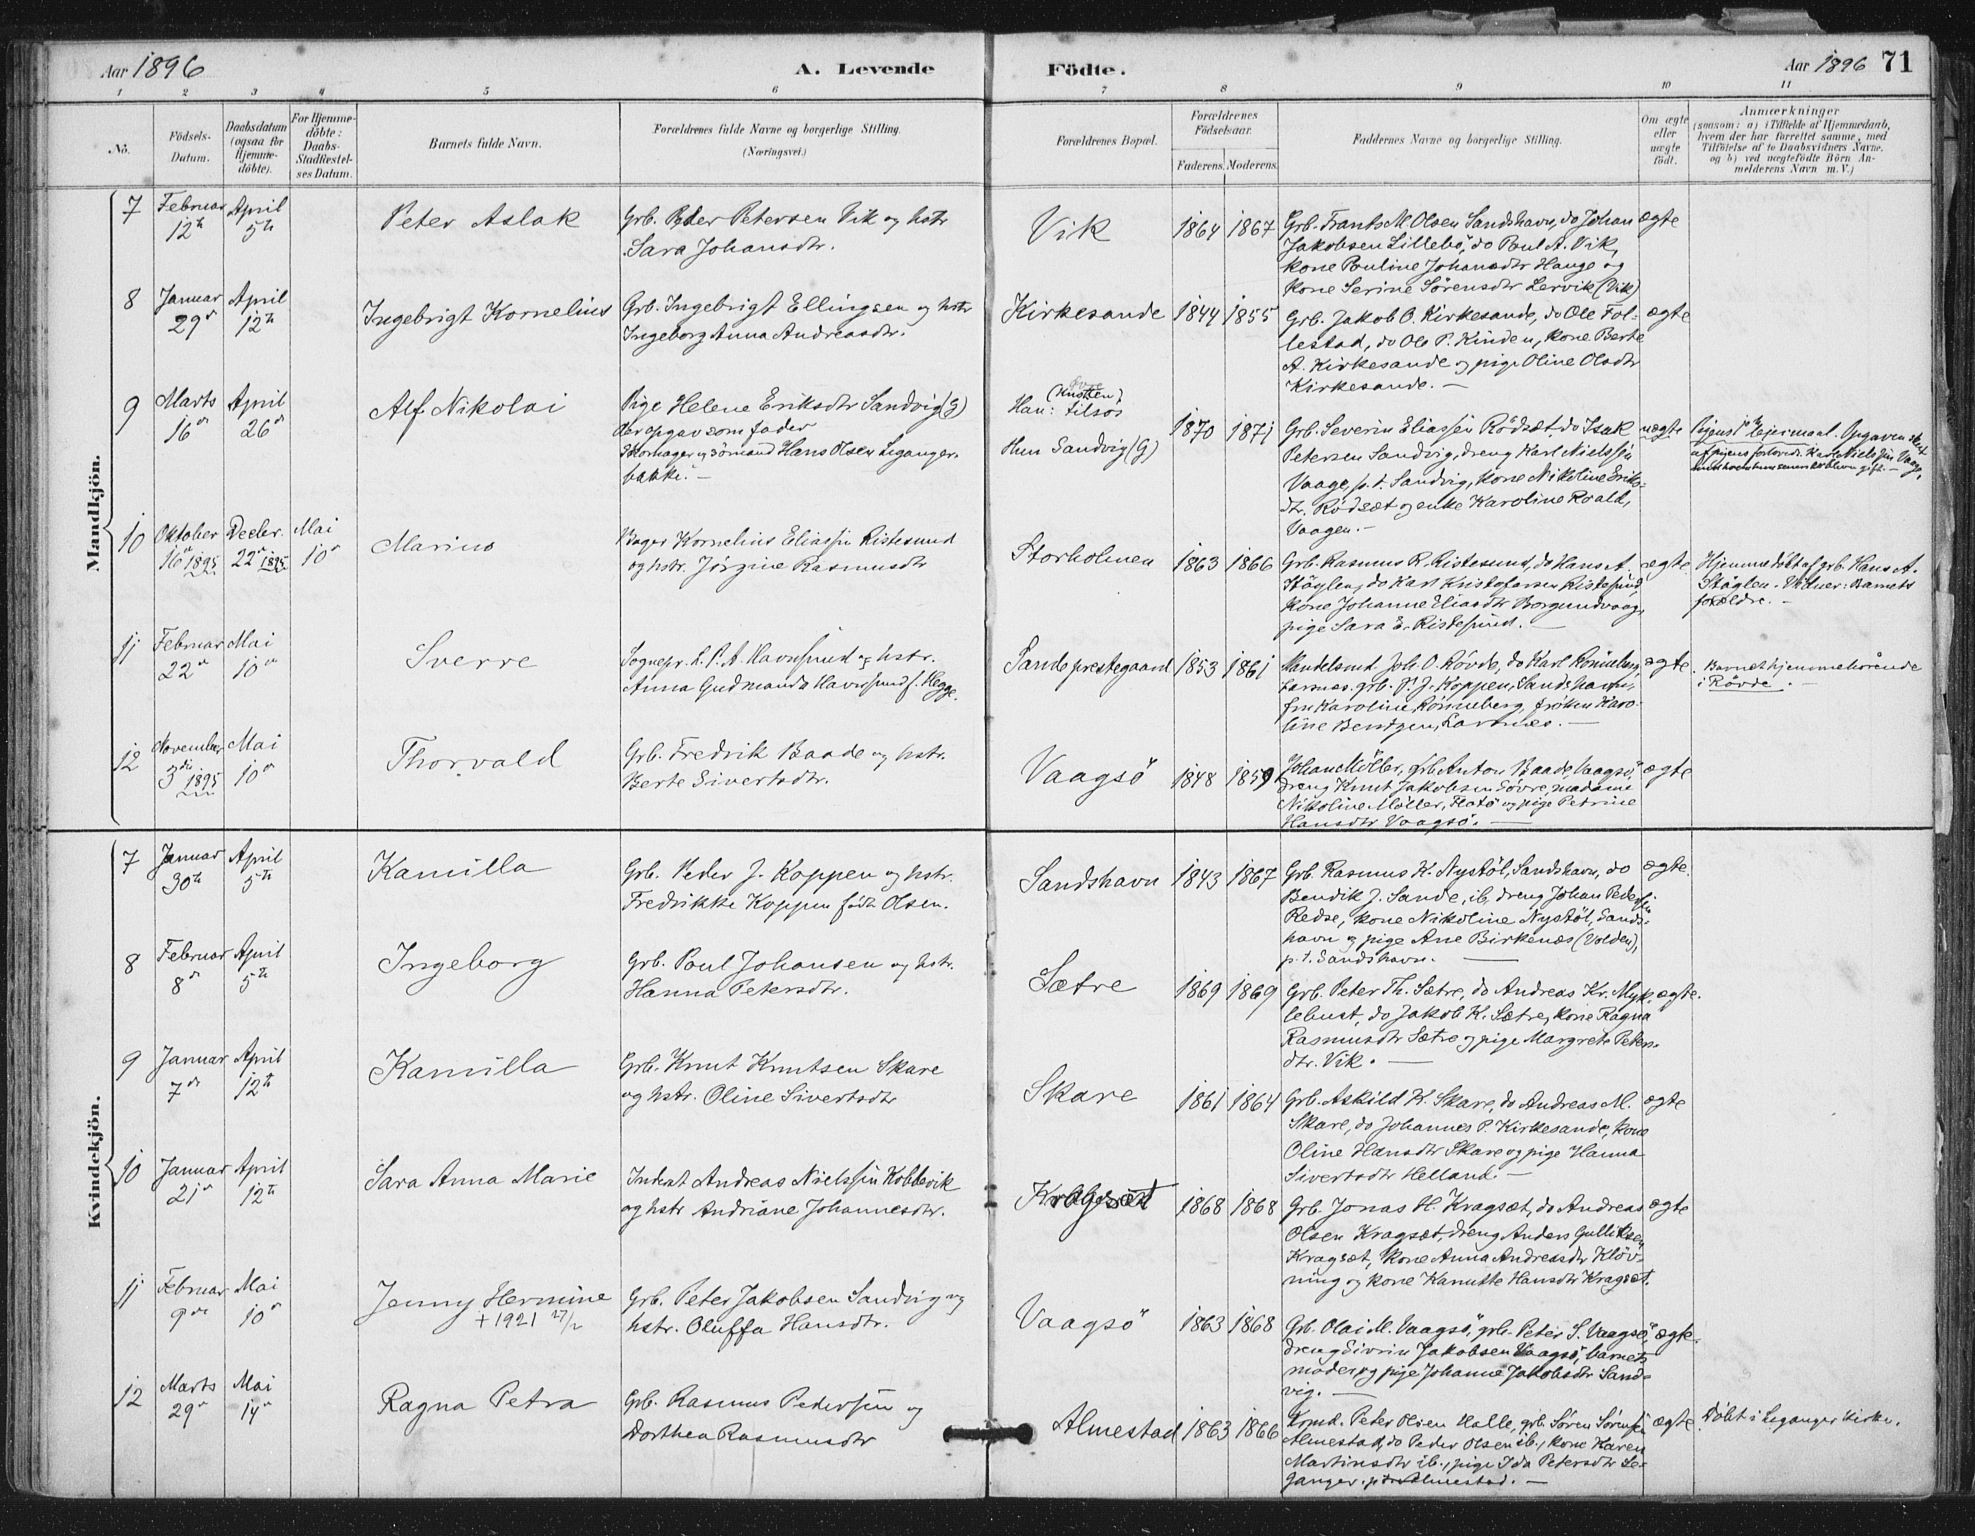 Aar 1896
A. Levende
Födte.
Aar 1896 71
1 2 3 4 5 6 7 8 9 10 11
No.
Födsels-
Datum.
Daabsdatum
(ogsaa for
Hjemme-
döbte).
For Hjemme-
döbte:
Daabs-
Stadfæstel-
ses Datum.
Barnets fulde Navn.
Forældrenes fulde Navne og borgerlige Stilling.
(Næringsvei.)
Forældrenes Bopæl.
Forældrenes
Födselsaar.
Faderens. Moderens.
Faddernes Navne og borgerlige Stilling.
Om ægte
eller
uægte
födt.
Anmærkninger
(saasom: a) i Tilfælde af Hjemmedaab,
hvem der har forrettet samme, med
Tilföielse af to Daabsvidners Navne.
og b) ved uægtefödte Börn An-
melderens Navn m. V.)
Mandkjön.
7 Februar 12te April 5te
Peter Aslak
Grb. Peder Petersen Vik og hstr
Sara Johansdtr.
Vik 1864 1867
Grb. Frants M. Olsen Sandshavn, do Johan
Jakobsen Lillebø, do Poul A. Vik,
kone Pauline Johansdtr Hauge og
kone Serine Sørensdtr Lervik (Vik)
ægte
8 Januar 29de April 12te
Ingebrigt Kornelius
Grb. Ingebrigt Ellingsen og hstr
Ingeborg Anna Andreasdtr.
Kirkesande 1844 1855
Grb. Jakob O. Kirkesande, do Ole Fol-
lestad, do Ole P. Kinden, kone Berte
A. Kirkesande og pige Oline Olsdtr
Kirkesande. —
ægte
9 Marts 16de April 26de
Alf Nikolai
Pige Helene Eriksdtr Sandvig (G)
der opgav som fader
Skomager og sömand Hans Olsen Leganger-
bakke. —
Han: tilsøs
Hun Sandvig (G)
1870 1871
Grb. Severin Eliassen Rødsæt, do Isak
Petersen Sandvig, dreng Karl Nielssen
Vaage, p. t. Sandvig, kone Nikoline Eriks-
dtr. Rødsæt og enke Karoline Roald,
Vaagen. —
uægte
Pigens 1ste leiermaal.
10 Oktober 16de 1895 Decbr. 22de 1895 Mai 10de
Marius
Bager Kornelius Eliassen Ristesund
og hstr. Jørgine Rasmusdtr
Storholmen 1863 1866
Grb. Rasmus R. Ristesund, do Hans A.
Støylen, do Karl Kristofersen Ristesund,
kone Johanne Eliasdtr Borgundvaag,
pige Sara E. Ristesund. —
ægte
Hjemmedöbt af grb. Hans A.
Støylen. Vidner: Barnets
forældre. —
11 Februar 22de Mai 10de
Sverre
Sognepr. L. P. A. Havnsund og hstr.
Anna Gudmanda Havnsund f. Hegge.
Sande prestegaard 1853 1861
Handelsmd. Joh. O. Røvde, do Karl Rönneberg,
Larsnes, grb. P. J. Koppen, Sandshavn,
fru Karoline Rönneberg, frøken Karo-
line Bendtzen, Larsnæs. —
ægte
Barnet hjemmehörende
i Røvde. —
12 November 3die 1895 Mai 10de
Thorvald
Grb. Fredrik Baade og hstr.
Berte Sivertsdtr.
Vaagsö 1848 1859
Johan Möller, grb Anton Baade, Vaagsö,
dreng Knut Jakobsen Søvre, madame
Nikoline Møller, Flatö og pige Petrine
Hansdtr Vaagsö. —
ægte
Kvindekjön.
7 Januar 30te April 5te
Kamilla
Grb. Peder J. Koppen og hstr.
Fredrikke Koppen født Olsen.
Sandshavn 1843 1867
Grb. Rasmus K. Nystöl, Sandshavn, do
Bendik J. Sande, ib, dreng Johan Peders[en]
Redse, kone Nikoline Nystöl, Sands-
havn og pige Ane Birkenæs (Volden),
p. t. Sandshavn. —
ægte.
8 Februar 8de April 5te
Ingeborg
Grb. Poul Johansen og hstr.
Hanna Petersdtr.
Sætre 1869 1869
Grb. Peter Th. Sætre, do Andreas Kr. Myk-
lebust, do Jakob K. Sætre, kone Ragna
Rasmusdtr Sætre og pige Margrete Peters-
dtr. Vik. —
ægte.
9 Januar 7de April 12te
Kamilla
Grb. Knut Knutsen Skare
og hstr. Oline Sivertsdtr
Skare 1861 1864
Grb. Askild K. Skare, do Andreas M.
Skare, do Johannes P. Kirkesande, kone
Oline Hansdtr Skare og pige Hanna
Sivertsdtr Helland. —
ægte
10 Januar 21de April 12te
Sara Anna Marie
Inderst Andreas Nielssen Kobbevik
og hstr Andriane Johannesdtr.
Kragsæt 1868 1868
Grb. Jonas H. Kragsæt, do Andreas
Olsen Kragsæt, dreng Anders Gulliksen
Kragsæt, kone Anna Andreasdtr Kløv-
ning og kone Hanutte Hansdtr Kragsæt.
ægte
11 Februar 9de Mai 10de
Jenny Hermine
+ 1921 27/2
Grb. Peter Jakobsen Sandvig og
hstr. Oluffa Hansdtr.
Vaagsö 1863 1868
Grb. Olai M. Vaagsö, grb. Peter S. Vaagsö,
dreng Sivrin Jakobsen Vaagsö, barnets
moder og pige Johanne Jakobsdtr Sand-
vig. —
ægte.
12 Marts 29de Mai 14de
Ragna Petra
Grb. Rasmus Pederssen og
Dorthea Rasmusdtr
Almestad 1863 1866
Krmd. Peter Olsen Halle, grb. Søren Sørenssen
Almestad, do Peder Olsen ib., kone Karen
Martinsdtr ib., pige Ida Petersdtr Le-
ganger. p. t. Almestad. —
ægte
Döbt i Leganger kirke.